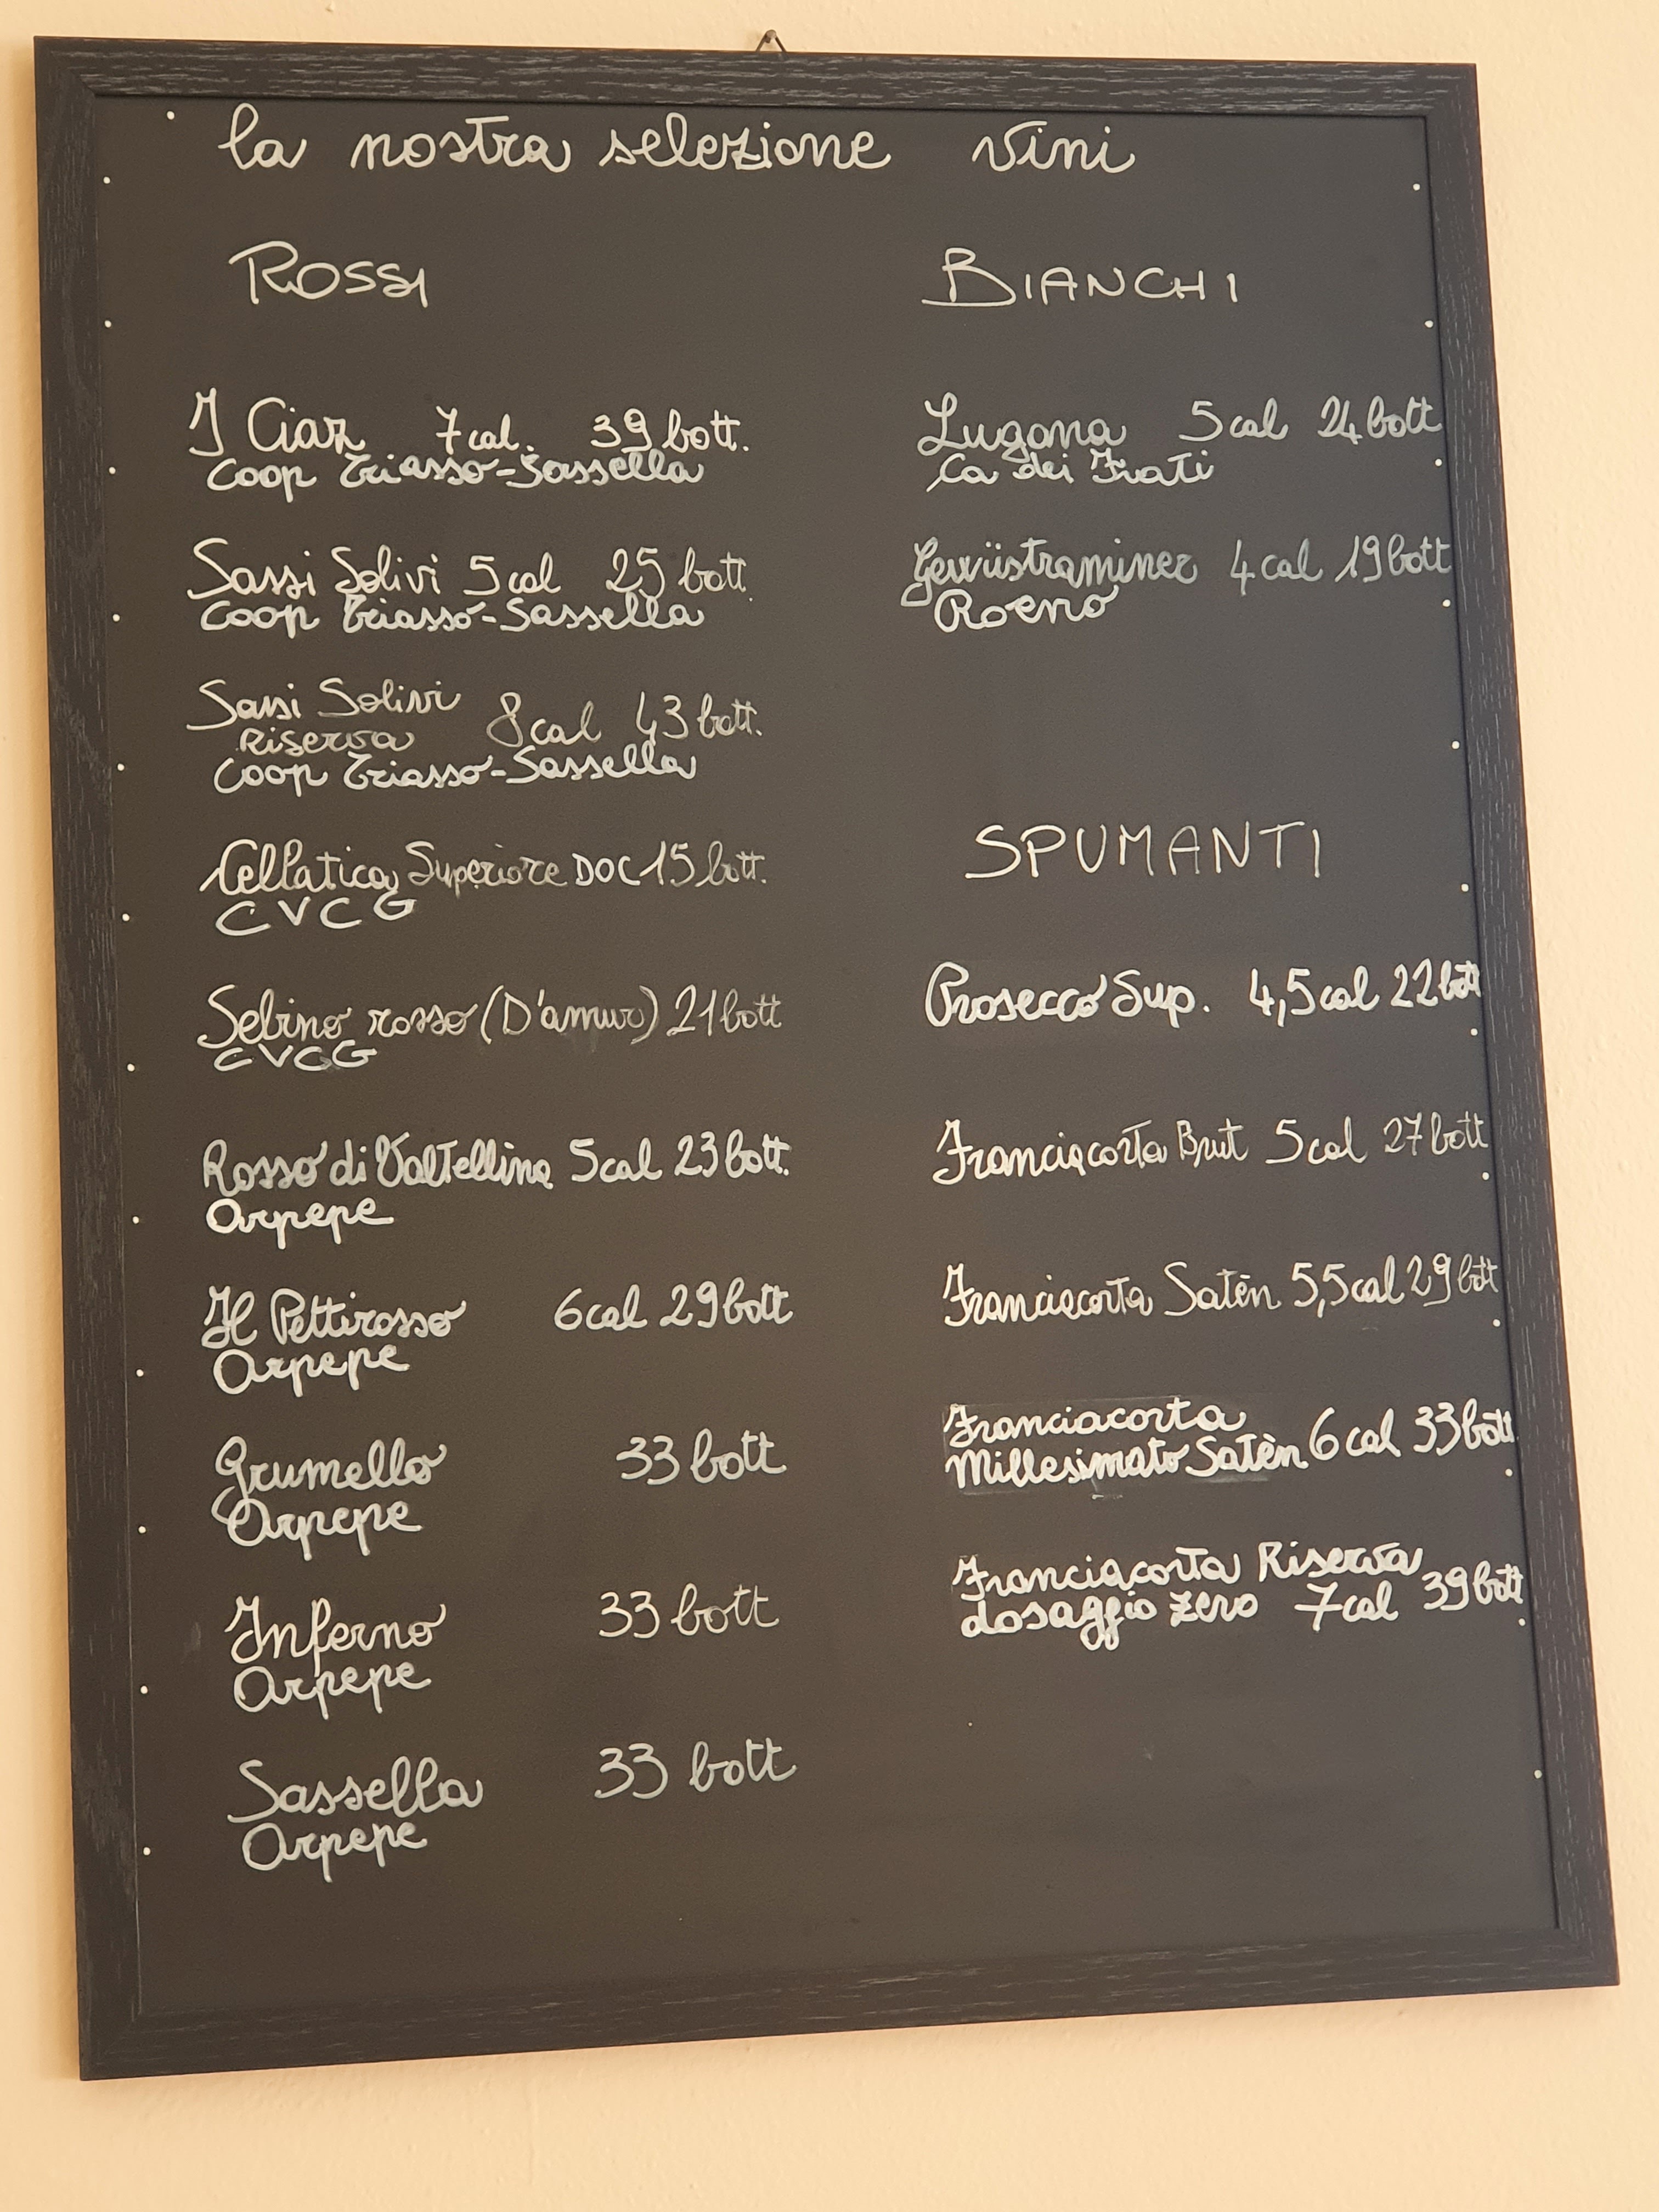 la nostra selezione vini
ROSSI
I Ciaz 7 cal. 39 bott.
Coop Triasso-Sassella
Sassi Solivi 5 cal 25 bott.
Coop Triasso-Sassella
Sassi Solivi
Riserva 8 cal 43 bott.
Coop Triasso-Sassella
Cellatica Superiore DOC 15 bott.
CVCG
Sebino rosso (D'amur) 21 bott
CVCG
Rosso di Valtellina 5 cal 23 bott.
Arpepe
Il Pettirosso 6 cal 29 bott
Arpepe
Grumello 33 bott
Arpepe
Inferno 33 bott
Arpepe
Sassella 33 bott
Arpepe
BIANCHI
Lugana 5 cal 24 bott
Ca dei Frati
Gewüstraminer 4 cal 19 bott
Roeno
SPUMANTI
Prosecco Sup. 4,5 cal 22 bott
Franciacorta Brut 5 cal 27 bott
Franciacorta Satèn 5,5 cal 29 bott
Franciacorta
Millesimato Satèn 6 cal 33 bott
Franciacorta Riserva
dosaggio zero 7 cal 39 bott